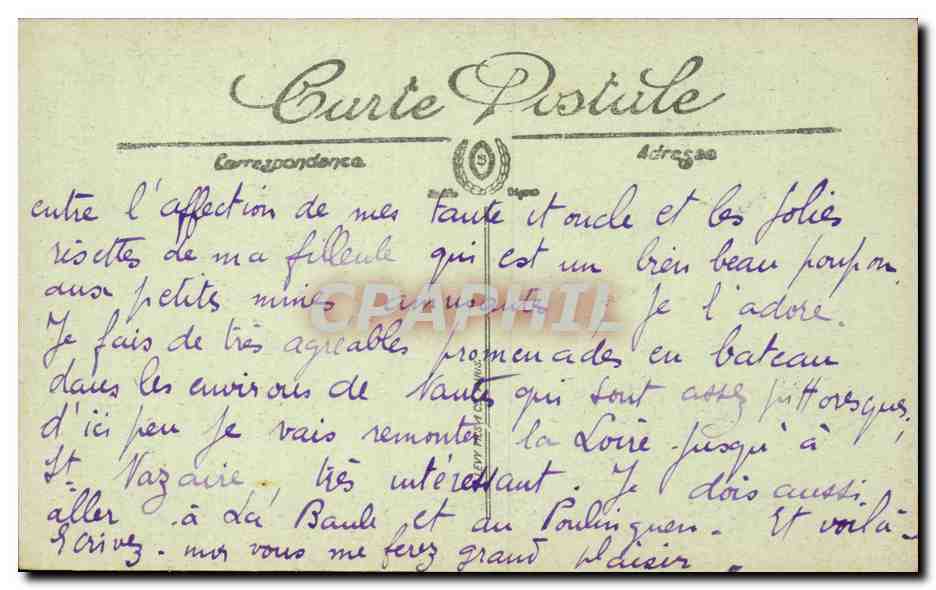 Carte Postale
Correspondance
Adresse
entre l'affection de mes tante et oncle et les jolies
risettes de ma filleule qui est un bien beau poupon
aux petites mines amusantes. Je l'adore.
Je fais de très agréables promenades en bateau
dans les environs de Nantes qui sont assez pittoresques,
d'ici peu je vais remonter la Loire jusqu'à
St Nazaire, très intéressant. Je dois aussi
aller à La Baule et au Pouliguen. Et voilà-
Ecrivez-moi vous me ferez grand plaisir.
CPARPHIL
LEVY FILS & C